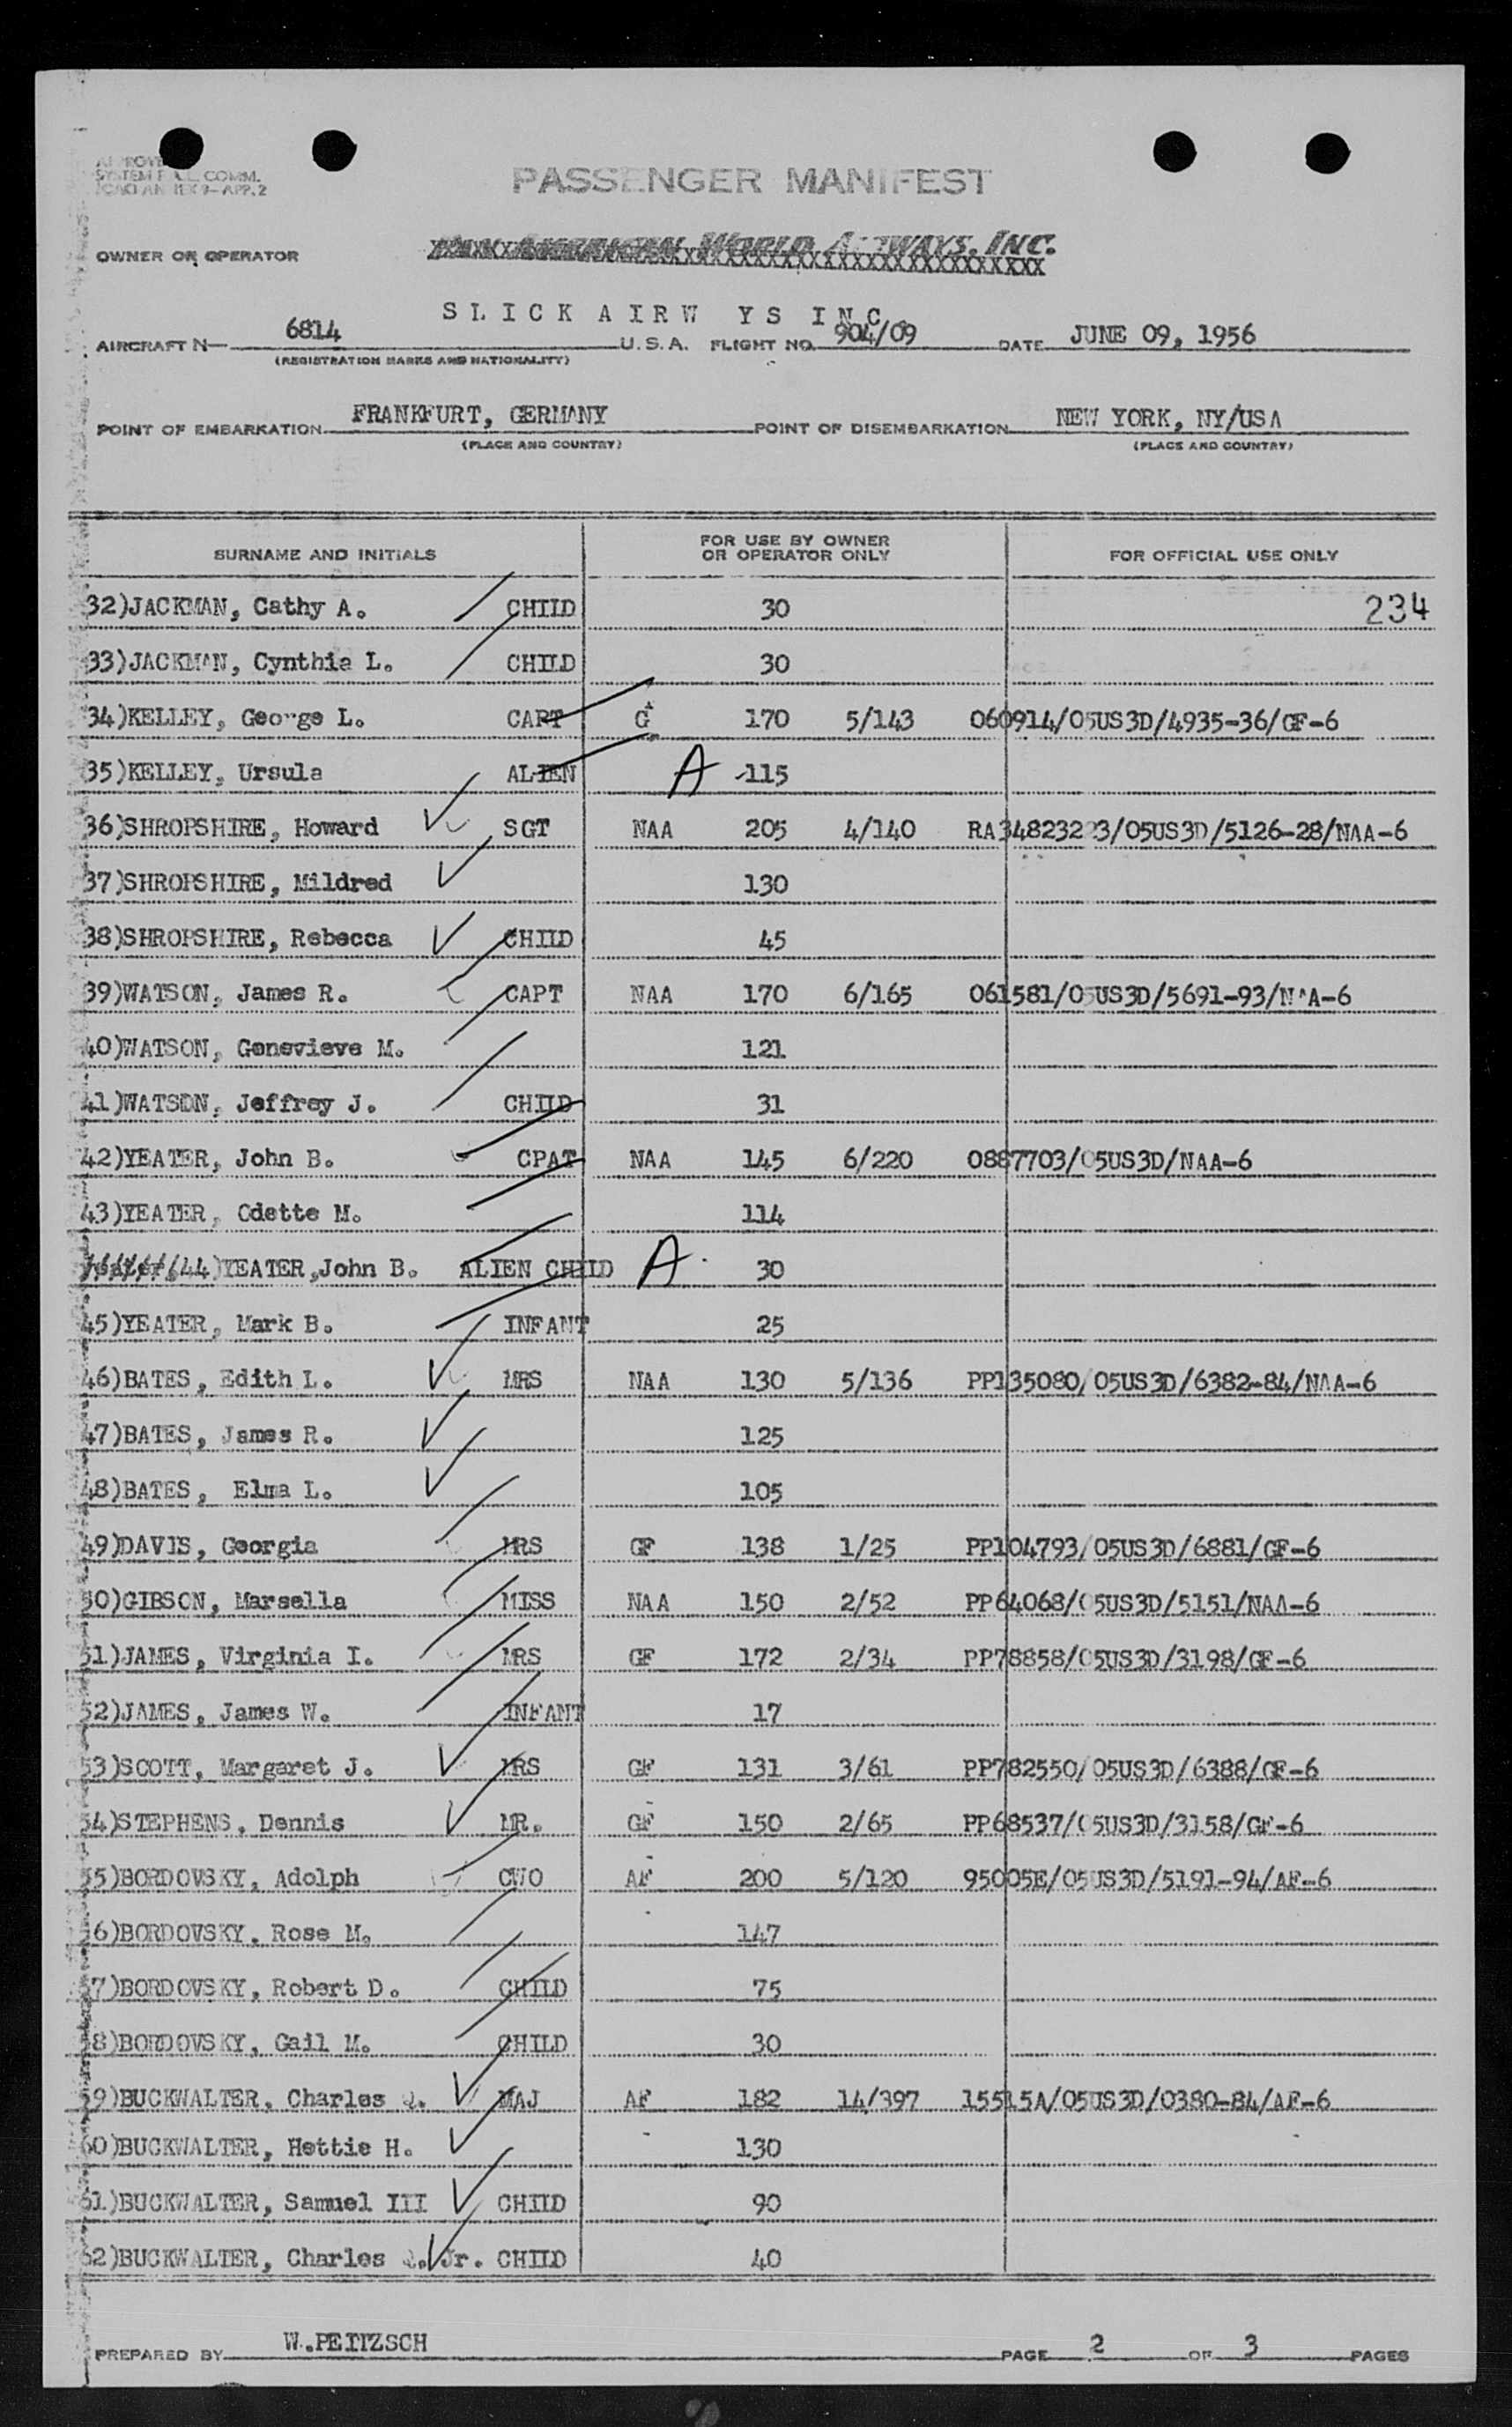 PASSENGER MANIFEST
OWNER OR OPERATOR WORLD AIRWAYS, INC.
SLICK AIRW YS INC
AIRCRAFT N- 6814 U.S.A. FLIGHT NO. 904/09 DATE JUNE 09, 1956
(REGISTRATION MARKS AND NATIONALITY)
POINT OF EMBARKATION FRANKFURT, GERMANY POINT OF DISEMBARKATION NEW YORK, NY/USA
(PLACE AND COUNTRY) (PLACE AND COUNTRY)
SURNAME AND INITIALS FOR USE BY OWNER OR OPERATOR ONLY FOR OFFICIAL USE ONLY
32)JACKMAN, Cathy A. CHILD 30 234
33)JACKMAN, Cynthia L. CHILD 30
34)KELLEY, George L. CAPT G 170 5/143 060914/05US3D/4935-36/GF-6
35)KELLEY, Ursula ALIEN A 115
36)SHROPSHIRE, Howard SGT NAA 205 4/140 /05US3D/5126-28/NAA-6
37)SHROPSHIRE, Mildred 130
38)SHROPSHIRE, Rebecca CHILD 45
39)WATSON, James R. CAPT NAA 170 6/165 061581/05US3D/5691-93/NAA-6
40)WATSON, Genevieve M. 121
41)WATSON, Jeffrey J. CHILD 31
42)YEATER, John B. CPAT NAA 145 6/220 0887703/05US3D/NAA-6
43)YEATER, Odette M. 114
44)YEATER,John B. ALIEN CHILD A 30
45)YEATER, Mark B. INFANT 25
46)BATES, Edith L. MRS NAA 130 5/136 PP135080/05US3D/6382-84/NAA-6
47)BATES, James R. 125
48)BATES, Elma L. 105
49)DAVIS, Georgia MRS GF 138 1/25 PP104793/05US3D/6881/GF-6
50)GIBSON, Marsella MISS NAA 150 2/52 PP64068/05US3D/5151/NAA-6
51)JAMES, Virginia I. MRS GF 172 2/34 PP78858/05US3D/3198/GF-6
52)JAMES, James W. INFANT 17
53)SCOTT, Margaret J. MRS GF 131 3/61 PP782550/05US3D/6388/GF-6
54)STEPHENS, Dennis MR. GF 150 2/65 PP68537/05US3D/3158/GF-6
55)BORDOVSKY, Adolph CWO AF 200 5/120 95005E/05US3D/5191-94/AF-6
56)BORDOVSKY, Rose M. 147
57)BORDOVSKY, Robert D. CHILD 75
58)BORDOVSKY, Gail M. CHILD 30
59)BUCKWALTER, Charles Q. MAJ AF 182 14/397 15515A/05US3D/0380-84/AF-6
60)BUCKWALTER, Hettie H. 130
61)BUCKWALTER, Samuel III CHILD 90
62)BUCKWALTER, Charles Q. Jr. CHILD 40
PREPARED BY W.PEITZSCH PAGE 2 OF 3 PAGES